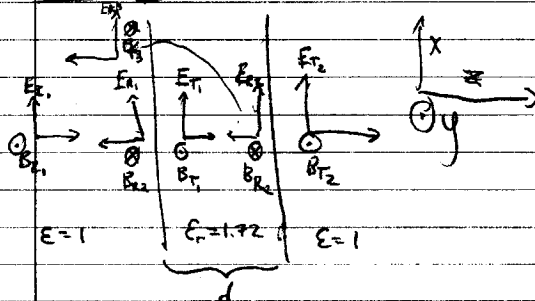 E_I1 E_R1 E_T1 E_R2 E_T2 x
z
y
B_I1 B_R2 B_T1 B_R2 B_T2
ε=1 ε_r=1.72 ε=1
d